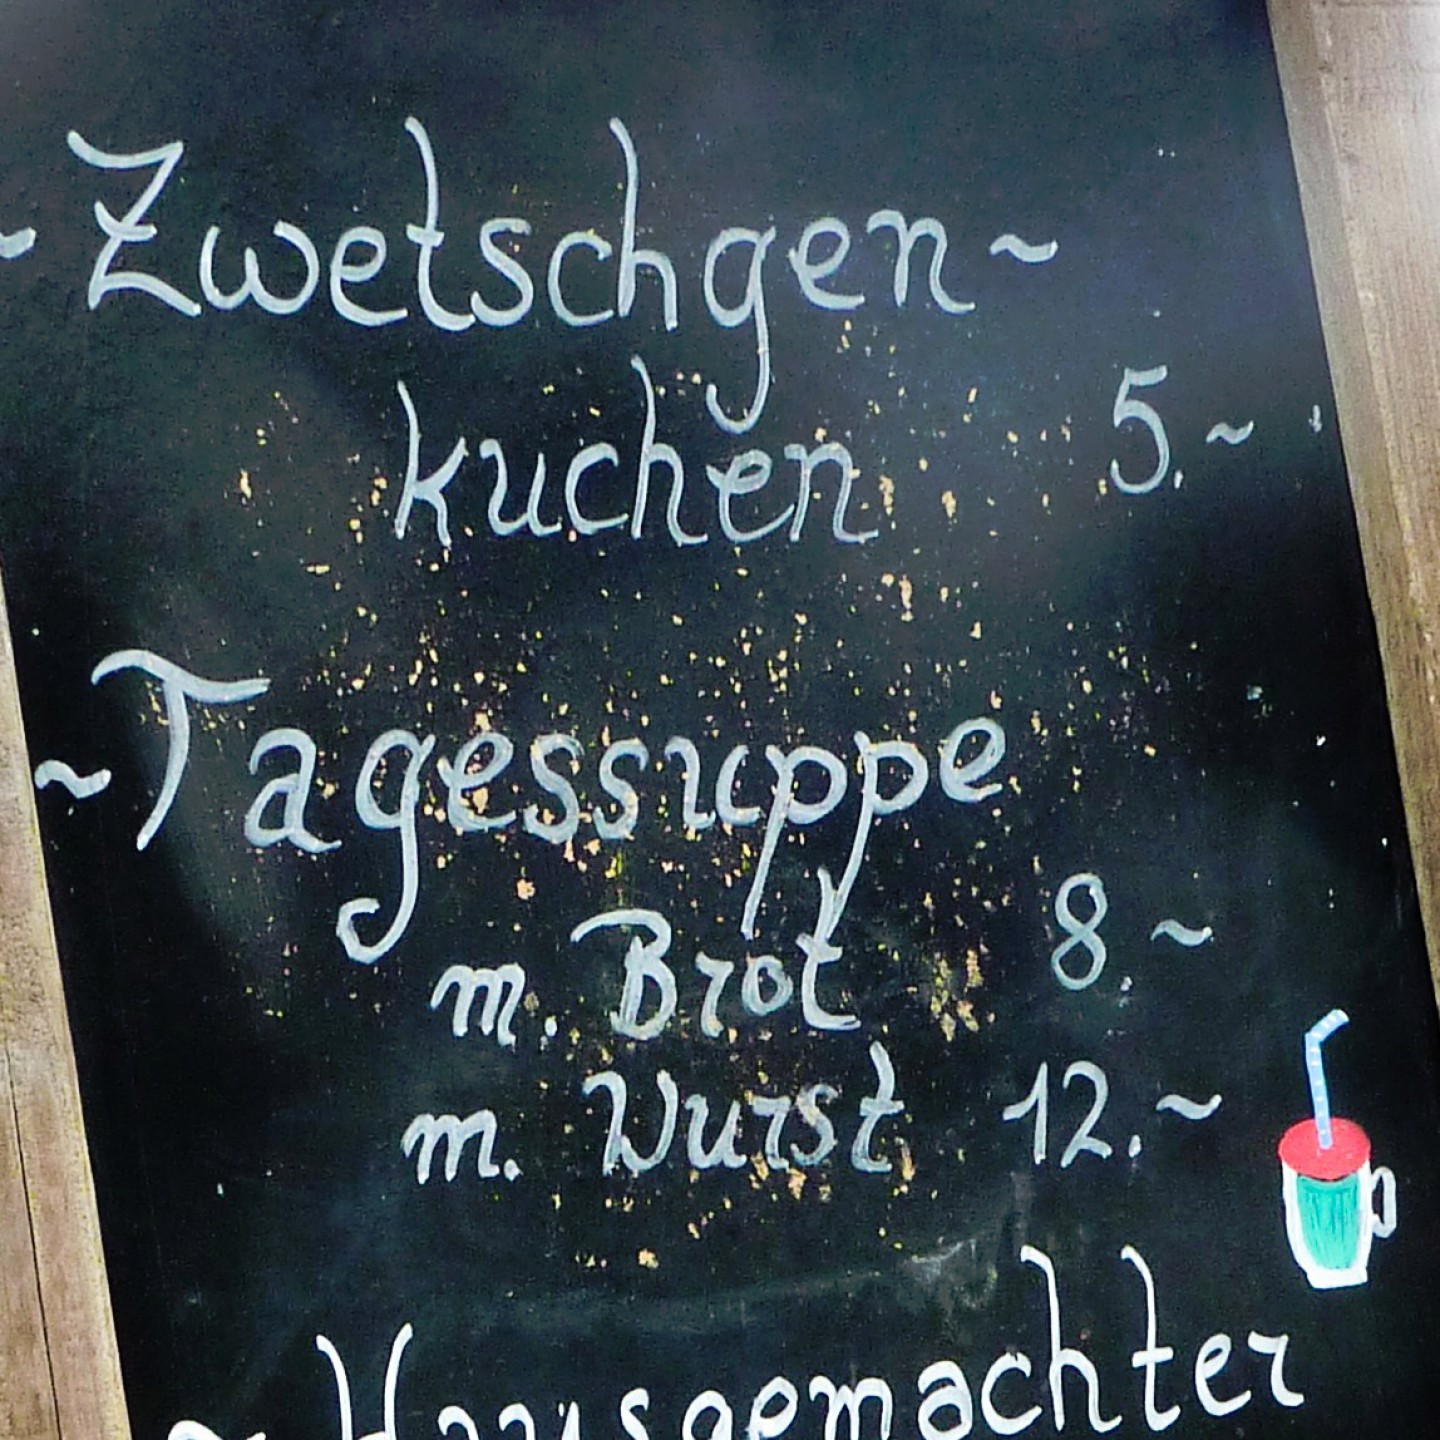 ~Zwetschgen~
kuchen 5.~
~Tagessuppe
m. Brot 8.~
m. Wurst 12.~
~ Hausgemachter